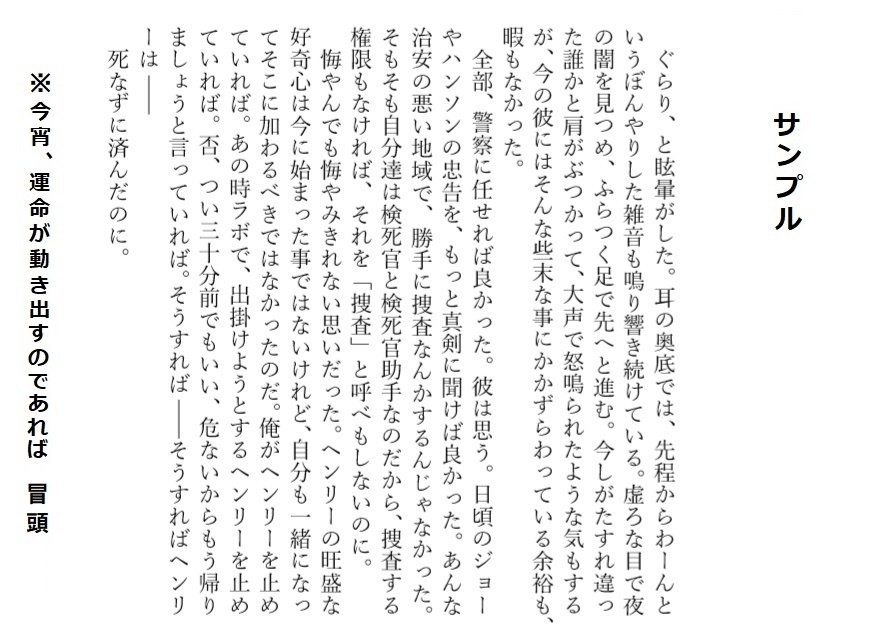 サンプル
ぐらり、と眩暈がした。耳の奥底では、先程からわーんと
いうぼんやりした雑音も鳴り響き続けている。虚ろな目で夜
の闇を見つめ、ふらつく足で先へと進む。今しがたすれ違っ
た誰かと肩がぶつかって、大声で怒鳴られたような気もする
が、今の彼にはそんな些末な事にかかずらわっている余裕も、
暇もなかった。
全部、警察に任せれば良かった。彼は思う。日頃のジョー
やハンソンの忠告を、もっと真剣に聞けば良かった。あんな
治安の悪い地域で、勝手に捜査なんかするんじゃなかった。
そもそも自分達は検死官と検死官助手なのだから、捜査する
権限もなければ、それを「捜査」と呼べもしないのに。
悔やんでも悔やみきれない思いだった。ヘンリーの旺盛な
好奇心は今に始まった事ではないけれど、自分も一緒になっ
てそこに加わるべきではなかったのだ。俺がヘンリーを止め
ていれば。あの時ラボで、出掛けようとするヘンリーを止め
ていれば。否、つい三十分前でもいい、危ないからもう帰り
ましょうと言っていれば。そうすれば――そうすればヘンリ
ーは――
死なずに済んだのに。
※今宵、運命が動き出すのであれば　冒頭